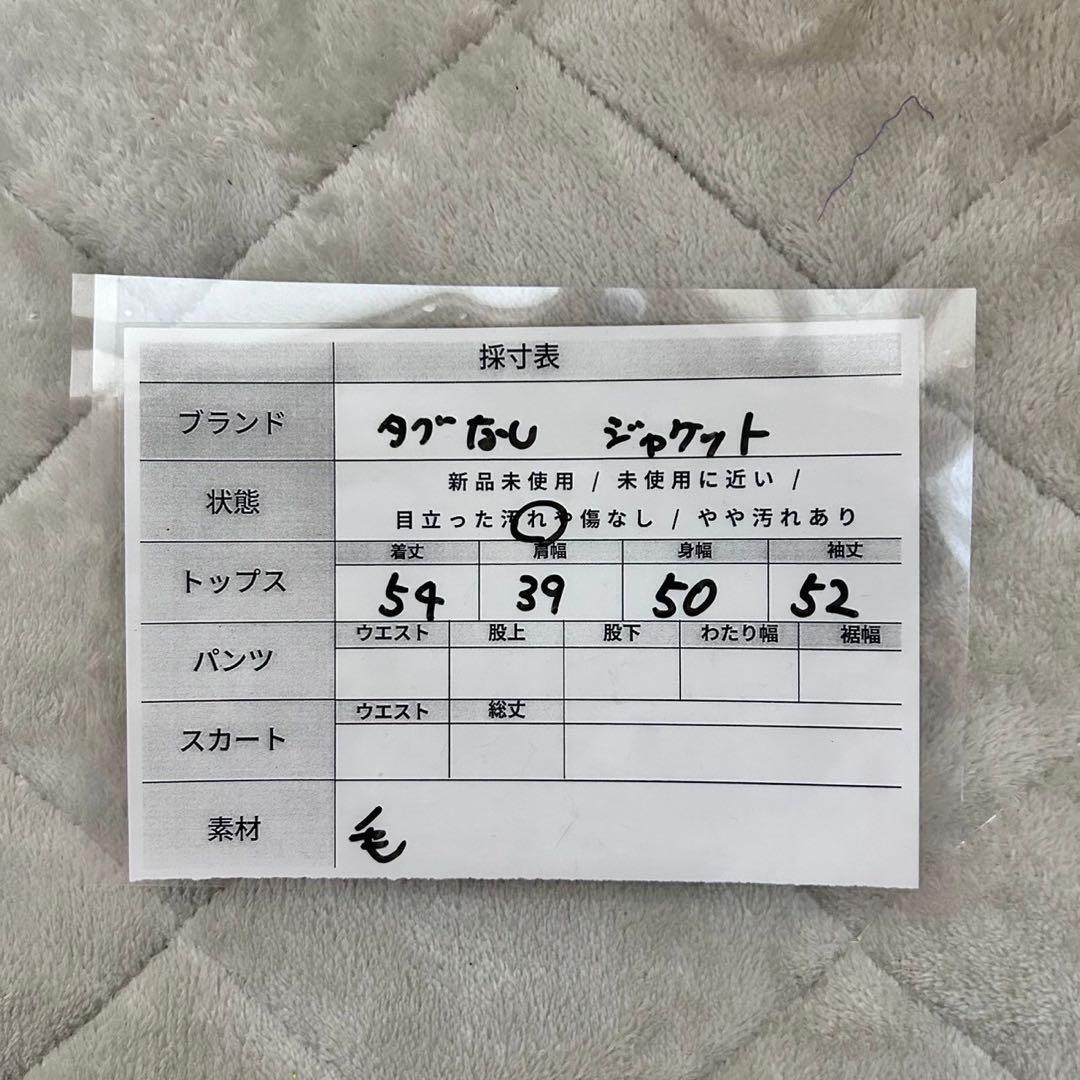 採寸表
ブランド タグなし ジャケット
状態 新品未使用 / 未使用に近い /
目立った汚れや傷なし / やや汚れあり
トップス 着丈 肩幅 身幅 袖丈
54 39 50 52
パンツ ウエスト 股上 股下 わたり幅 裾幅
スカート ウエスト 総丈
素材 毛